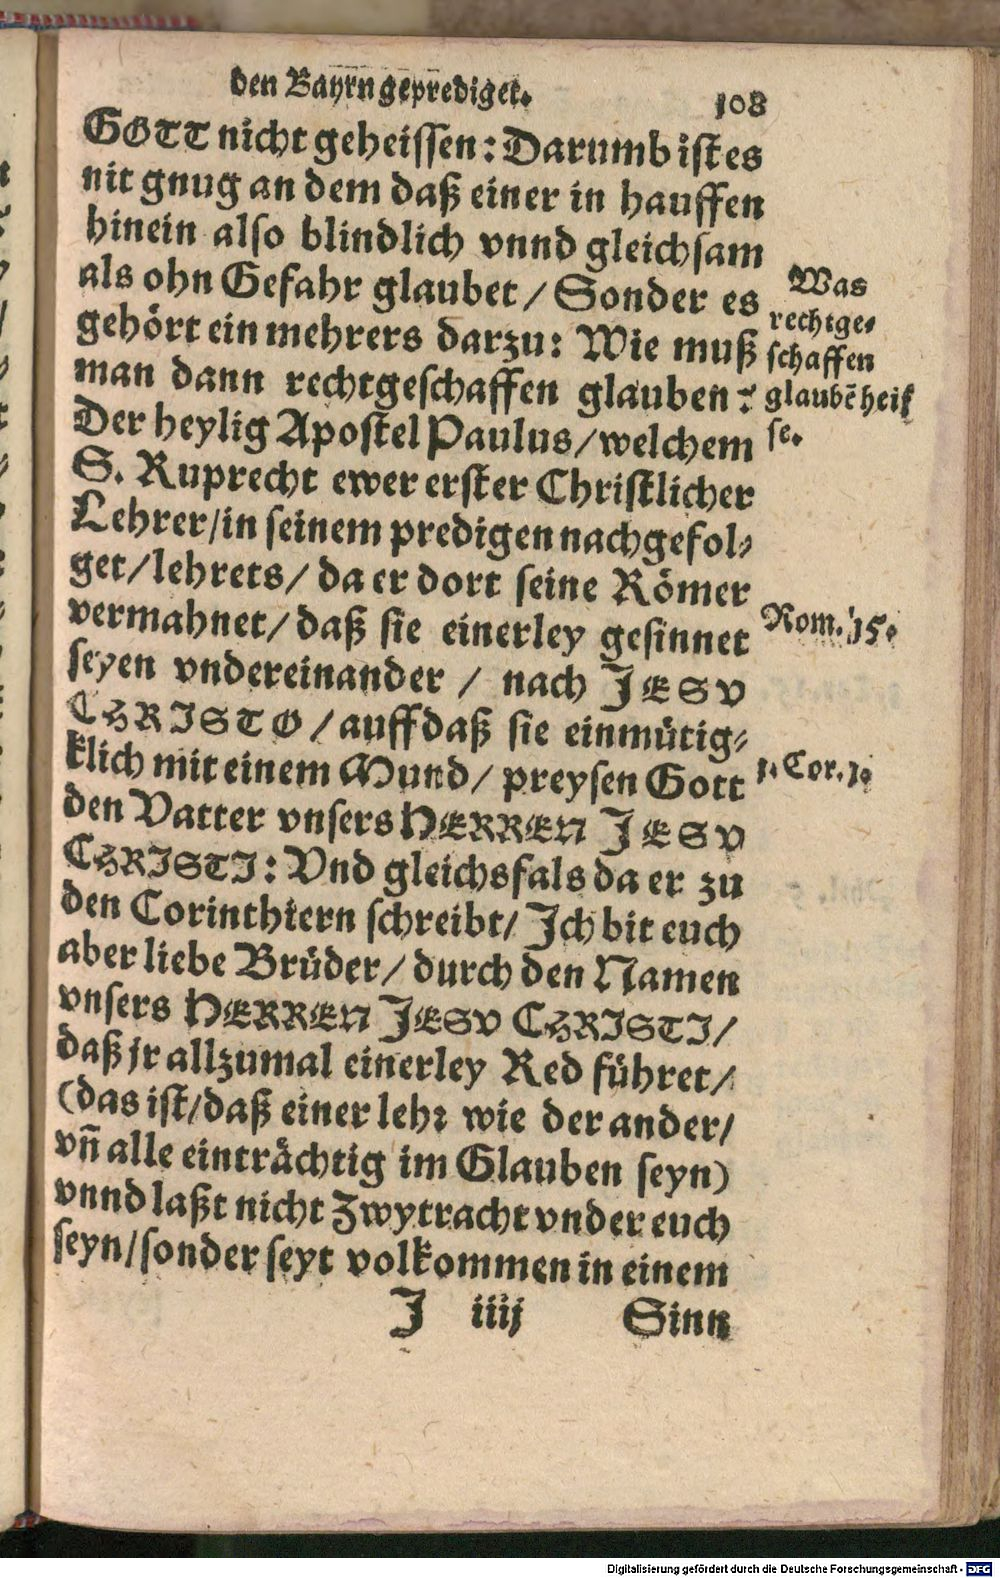 den Bayrn geprediget.
108
GOTT nicht geheissen: Darumb ist es
nit gnug an dem daß einer in hauffen
hinein also blindlich vnnd gleichsam
als ohn Gefahr glaubet / Sonder es
gehört ein mehrers darzu: Wie muß
man dann rechtgeschaffen glauben?
Der heylig Apostel Paulus / welchem
S. Ruprecht ewer erster Christlicher
Lehrer / in seinem predigen nachgefol⸗
get / lehrets / da er dort seine Römer
vermahnet / daß sie einerley gesinnet
seyen vndereinander / nach JESV
CHRISTO / auff daß sie einmütig⸗
klich mit einem Mund / preysen Gott
den Vatter vnsers HERREN JESV
CHRISTI: Vnd gleichsfals da er zu
den Corinthiern schreibt / Ich bit euch
aber liebe Brüder / durch den Namen
vnsers HERREN JESV CHRISTI /
daß jr allzumal einerley Red führet /
(das ist / daß einer lehr wie der ander /
vñ alle einträchtig im Glauben seyn)
vnnd laßt nicht Zwytracht vnder euch
seyn / sonder seyt volkommen in einem
J iiij Sinn
Was
rechtge⸗
schaffen
glaubē heis
se.
Rom. 15.
1. Cor. 1.
Digitalisierung gefördert durch die Deutsche Forschungsgemeinschaft - DFG